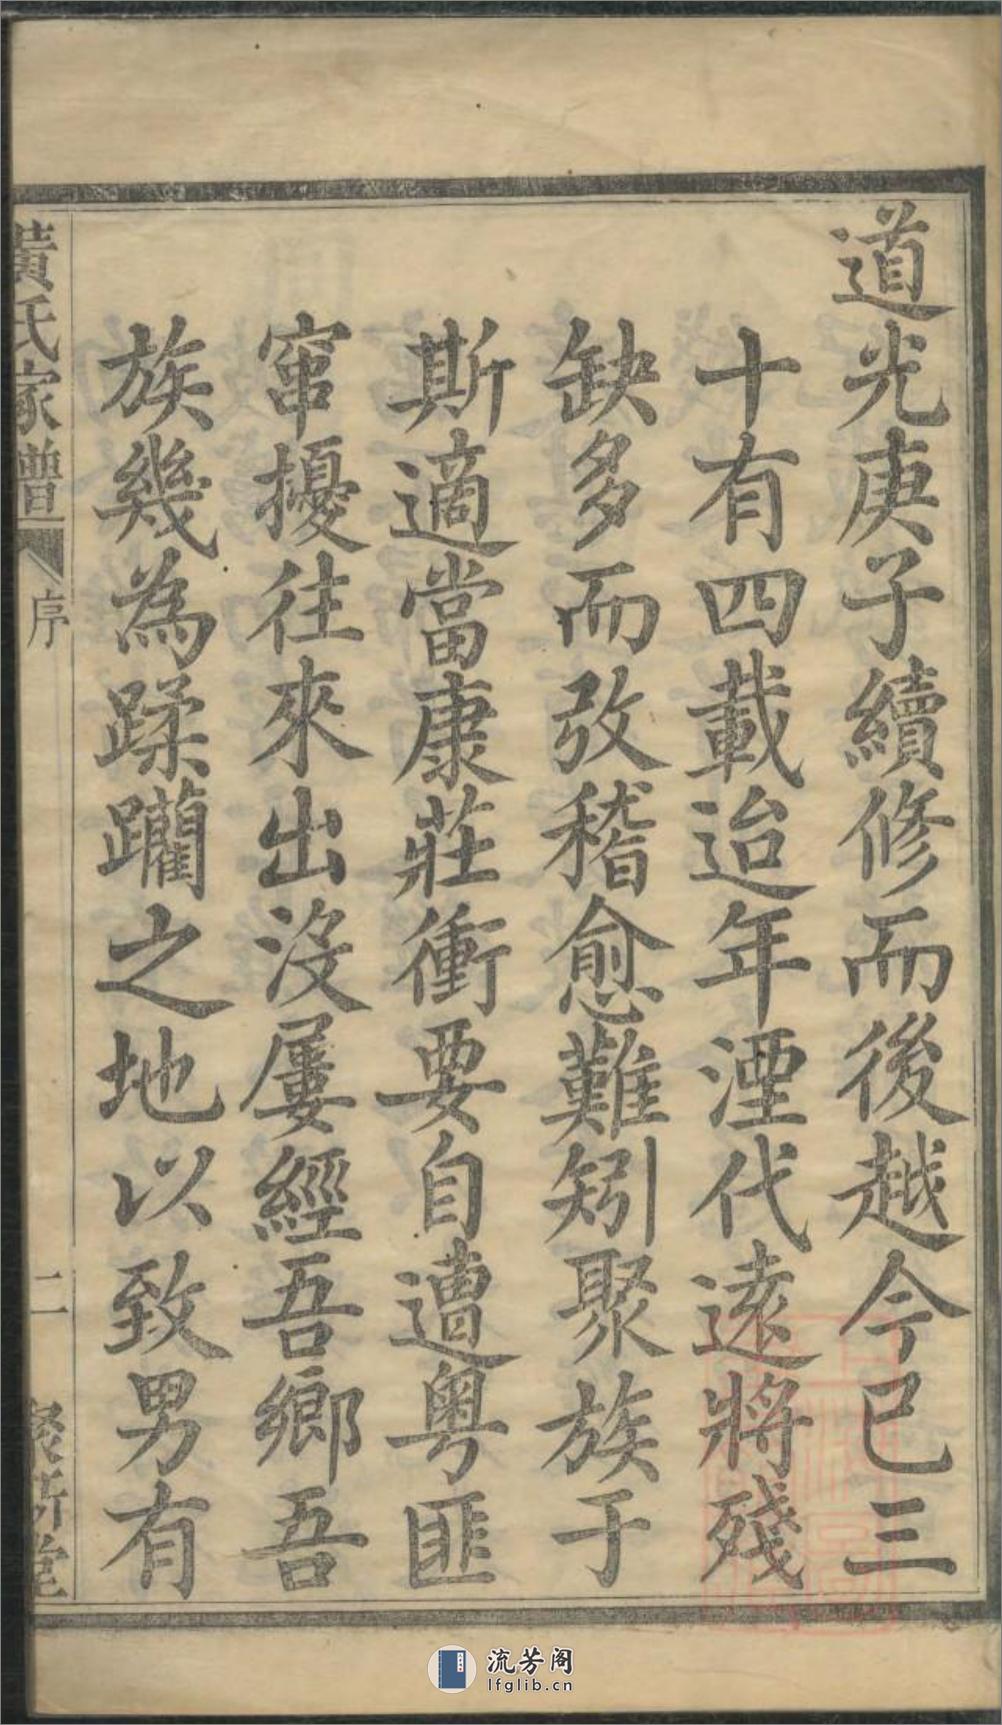 道光庚子續修而後越今已三
十有四載迨年湮代遠將殘
缺多而攷稽愈難矧聚族于
斯適當康莊衝要自遭粵匪
竄擾往來出沒屢經吾鄉吾
族幾為蹂躪之地以致男有
黃氏家譜
序
二
聚斯堂
流芳阁
lfglib.cn